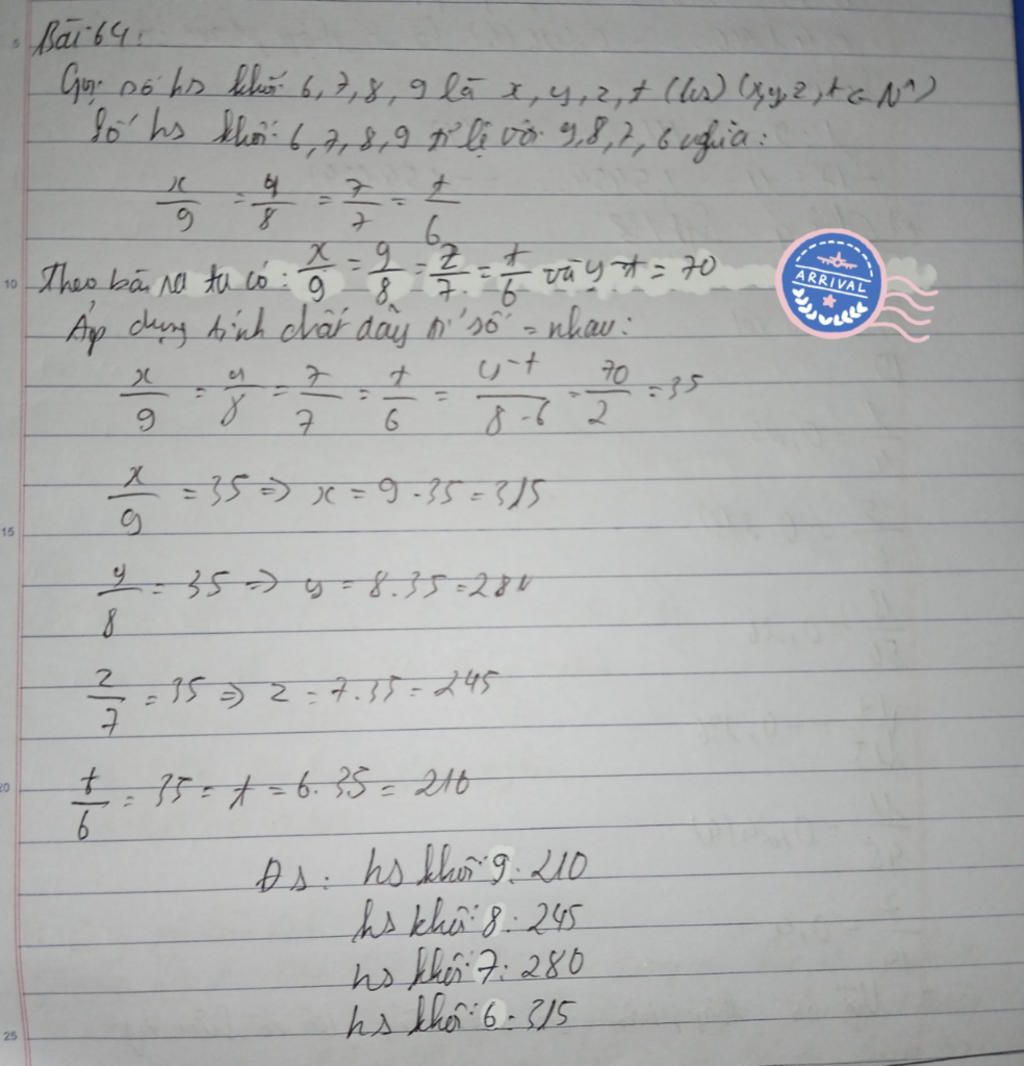 Bài 64:
Gọi số hs khối 6, 7, 8, 9 là x, y, z, t (hs) (x, y, z, t ∈ N*)
Số hs khối: 6, 7, 8, 9 tỉ lệ với 9, 8, 7, 6 nghĩa:
x/9 = y/8 = z/7 = t/6
Theo bài ra ta có: x/9 = y/8 = z/7 = t/6 và y-t = 70
ARRIVAL
Áp dụng tính chất dãy tỉ số = nhau:
x/9 = y/8 = z/7 = t/6 = y-t/8-6 = 70/2 = 35
x/9 = 35 => x = 9.35 = 315
y/8 = 35 => y = 8.35 = 280
z/7 = 35 => z = 7.35 = 245
t/6 = 35 = t = 6.35 = 210
Đs: hs khối 9: 210
hs khối 8: 245
hs khối 7: 280
hs khối 6: 315
5
10
15
20
25